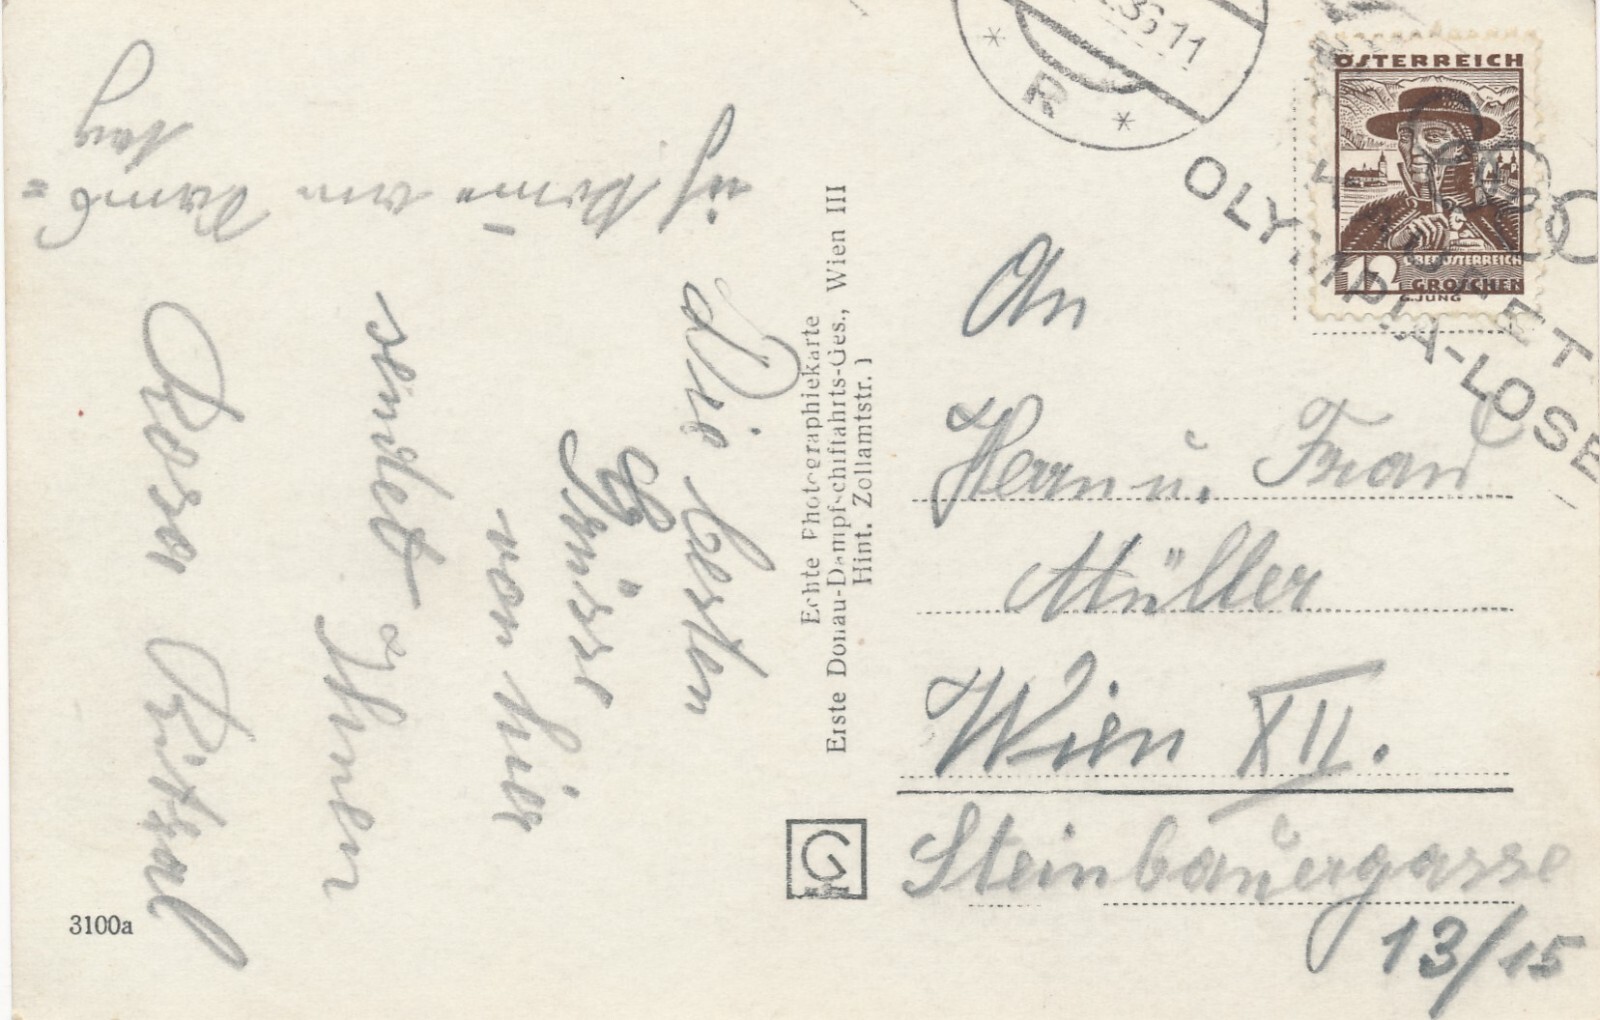 Die besten
Grüsse
von hier
sendet
Ihnen
Rosa
ich komme am
tag
Echte Photographiekarte
Erste Donau-Dampfschiffahrts-Ges., Wien III
Hint. Zollamtstr. 1
G
3100a
36 11
* R *
ÖSTERREICH
12
OBERÖSTERREICH
GROSCHEN
G.JUNG
OLYMPIA-LOSE
An
Herrn u. Frau
Müller
Wien XII.
Steinbauergasse
13/15